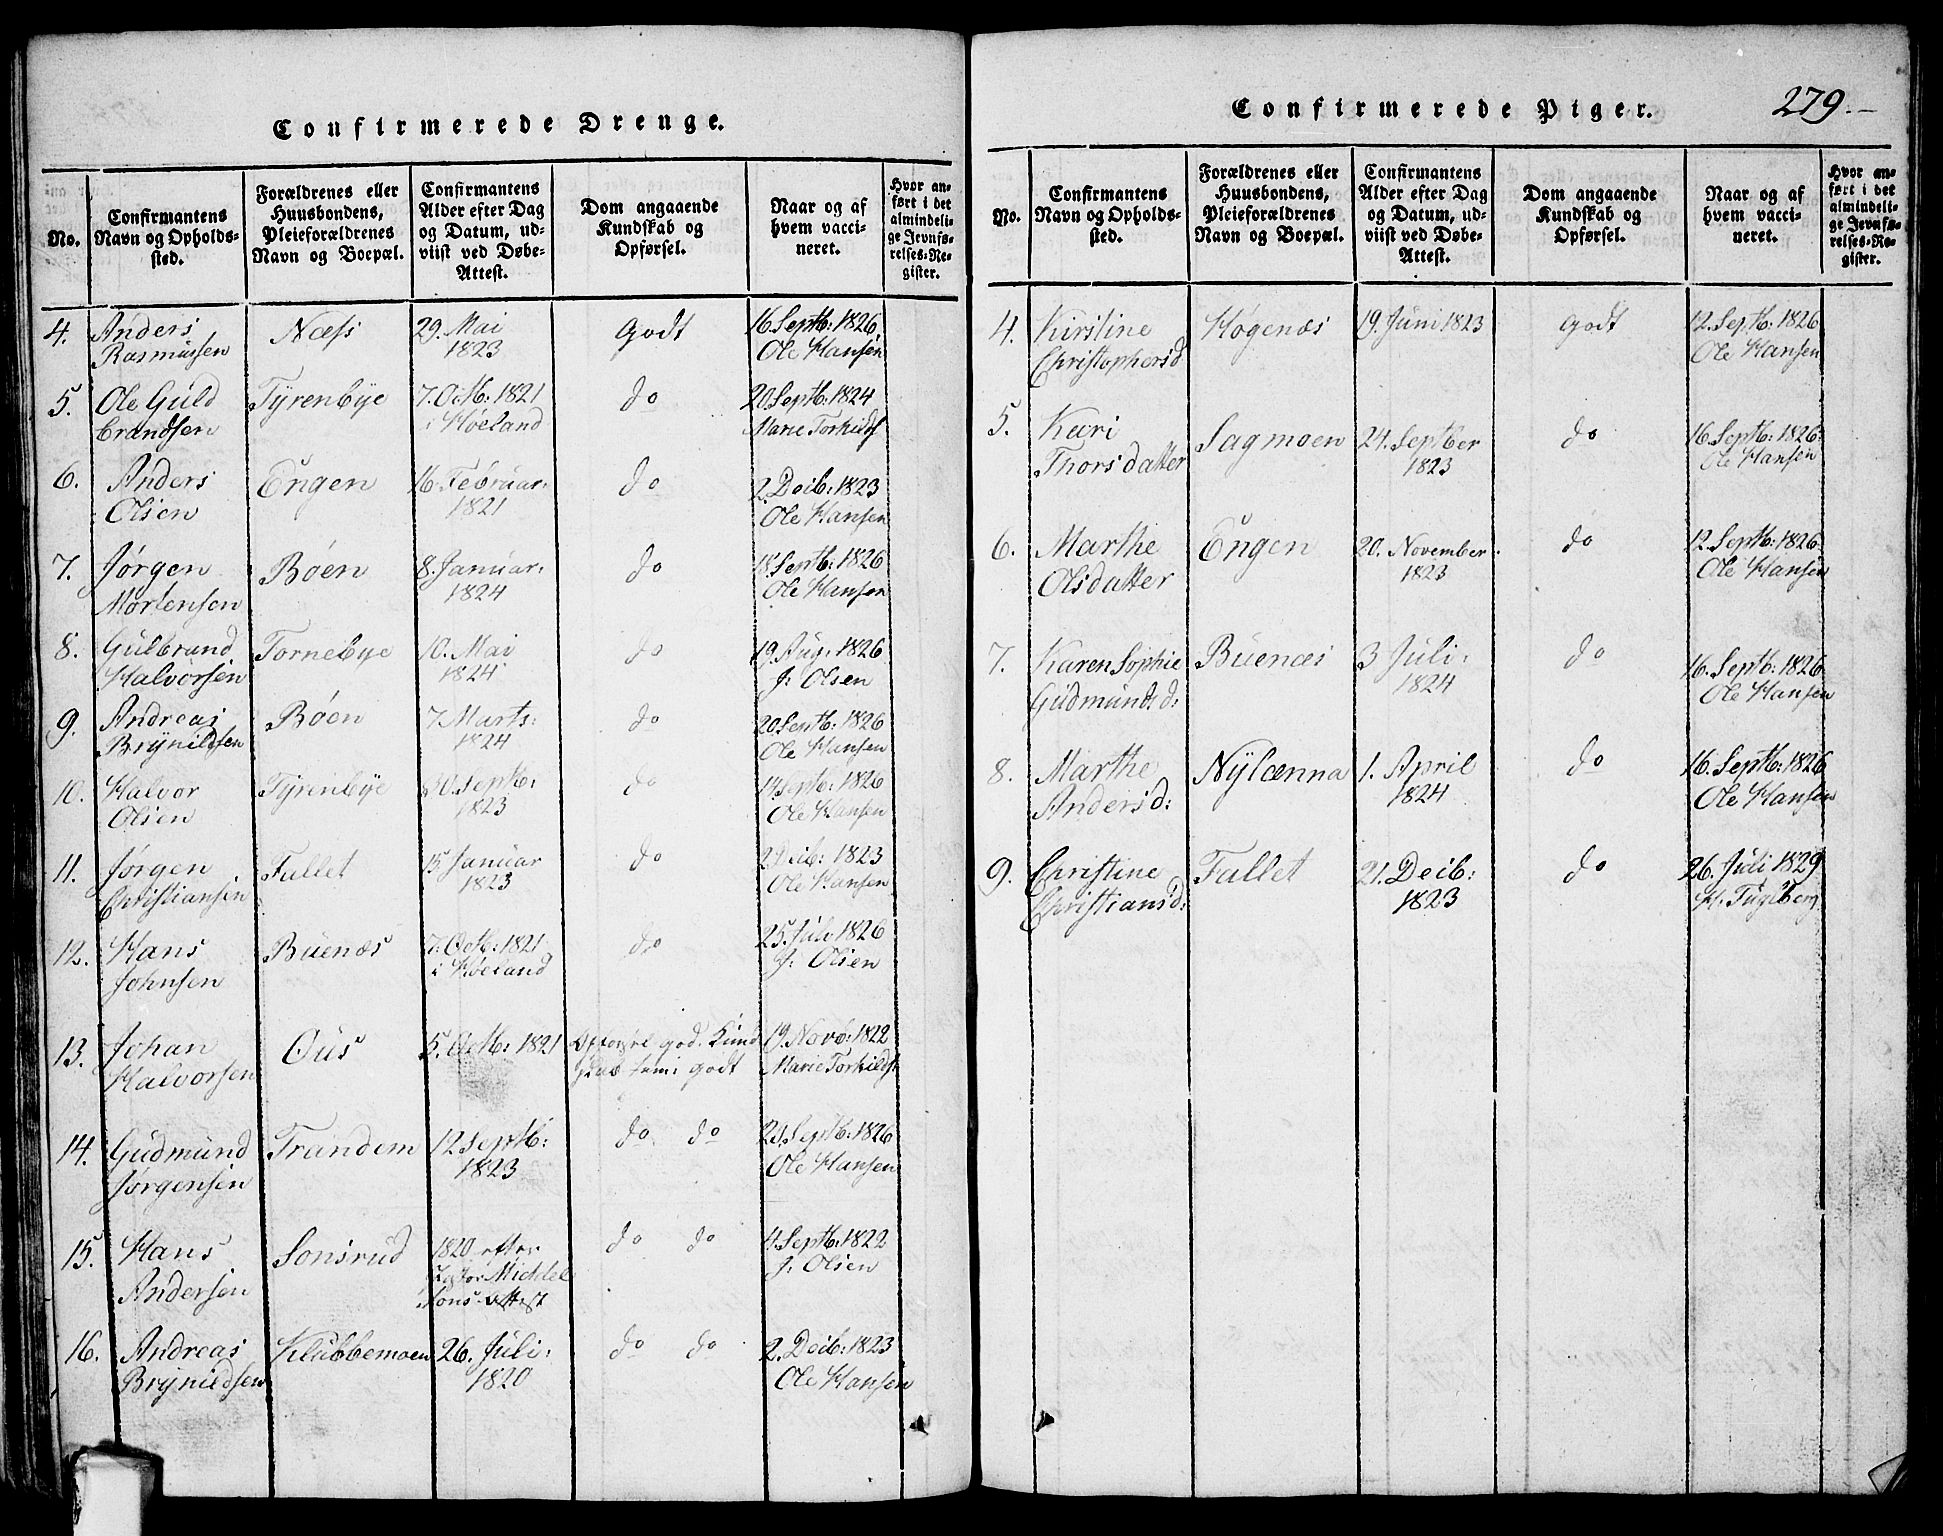 Confirmerede Drenge.
No.
Confirmantens
Navn og Opholds-
sted.
Forældrenes eller
Huusbondens,
Pleieforældrenes
Navn og Boepæl.
Confirmantens
Alder efter Dag
og Datum, ud-
viist ved Døbe-
Attest.
Dom angaaende
Kundskab og
Opførsel.
Naar og af
hvem vacci-
neret.
Hvor an-
ført i det
almindeli-
ge Jevnfø-
relses-Re-
gister.
4. Anders Næss 29. Mai Godt 16 Septb: 1826
Rasmussen 1823 Ole Hansen
5. Ole Guld Tyrenbye 7. Octb: 1821 do 20 Septb: 1824
brandsen i Høeland Marie Torkilds
6. Anders Engen 16 Februar: do 2. Decb: 1823
Olsen 1821 Ole Hansen
7. Jørgen Böen 8. Januar: do 18 Septb: 1826
Mortensen 1824 Ole Hansen
8. Gulbrand Tornebye 10. Mai do 19 Aug: 1826
Halvorsen 1824 J: Olsen
9. Andreas Böen 7 Marts: do 20 Septb: 1826
Brynildsen 1824 Ole Hansen
10. Halvor Tyrenbye 30 Septb: do 14 Septb: 1826
Olsen 1823 Ole Hansen
11. Jørgen Fallet 15 Januar do 2 Decb: 1823
Christiansen 1823 Ole Hansen
12. Hans Buenæs 7. Octb: 1821 do 25. Juli 1826
Johnsen i Høeland J: Olsen
13. Johan Ous 5. Octb: 1821 Opførsel god. Kund 19. Novb: 1822
Halvorsen skab tem: godt Marie Torkilds:
14. Gudmund Trandem 12 Septb: do do 21. Septb: 1826
Jørgensen 1823 Ole Hansen
15. Hans Sonsrud 1820 efter do do 4. Septb: 1822
Andersen Pastor Michel J: Olsen
sons attest
16. Andreas Klubbemoen 26. Juli: do do 2. Decb: 1823
Brynildsen 1820 Ole Hansen
Confirmerede Piger.
279.-
No.
Confirmantens
Navn og Opholds-
sted.
Forældrenes eller
Huusbondens,
Pleieforældrenes
Navn og Boepæl.
Confirmantens
Alder efter Dag
og Datum, ud-
viist ved Døbe-
Attest.
Dom angaaende
Kundskab og
Opførsel.
Naar og af
hvem vacci-
neret.
Hvor an-
ført i det
almindeli-
ge Jevnfø-
relses-Re-
gister.
4. Kirstine Høgenæs 19. Juni 1823 Godt 12. Septb: 1826
Christophersd Ole Hansen
5. Kari Sagmoen 24. September do 16 Septb: 1826
Thorsdatter 1823 Ole Hansen
6. Marthe Engen 20. November do 12 Septb: 1826
Olsdatter 1823 Ole Hansen
7. Karen Sophie Buenæs 3 Juli: do 16 Septb: 1826
Gudmundsd: 1824 Ole Hansen
8. Marthe Nylænna 1. April do 16. Septb: 1826
Andersd: 1824 Ole Hansen
9. Christine Fallet 21. Decb: do 26. Juli 1829
Christiansd: 1823 H. Fuglberg